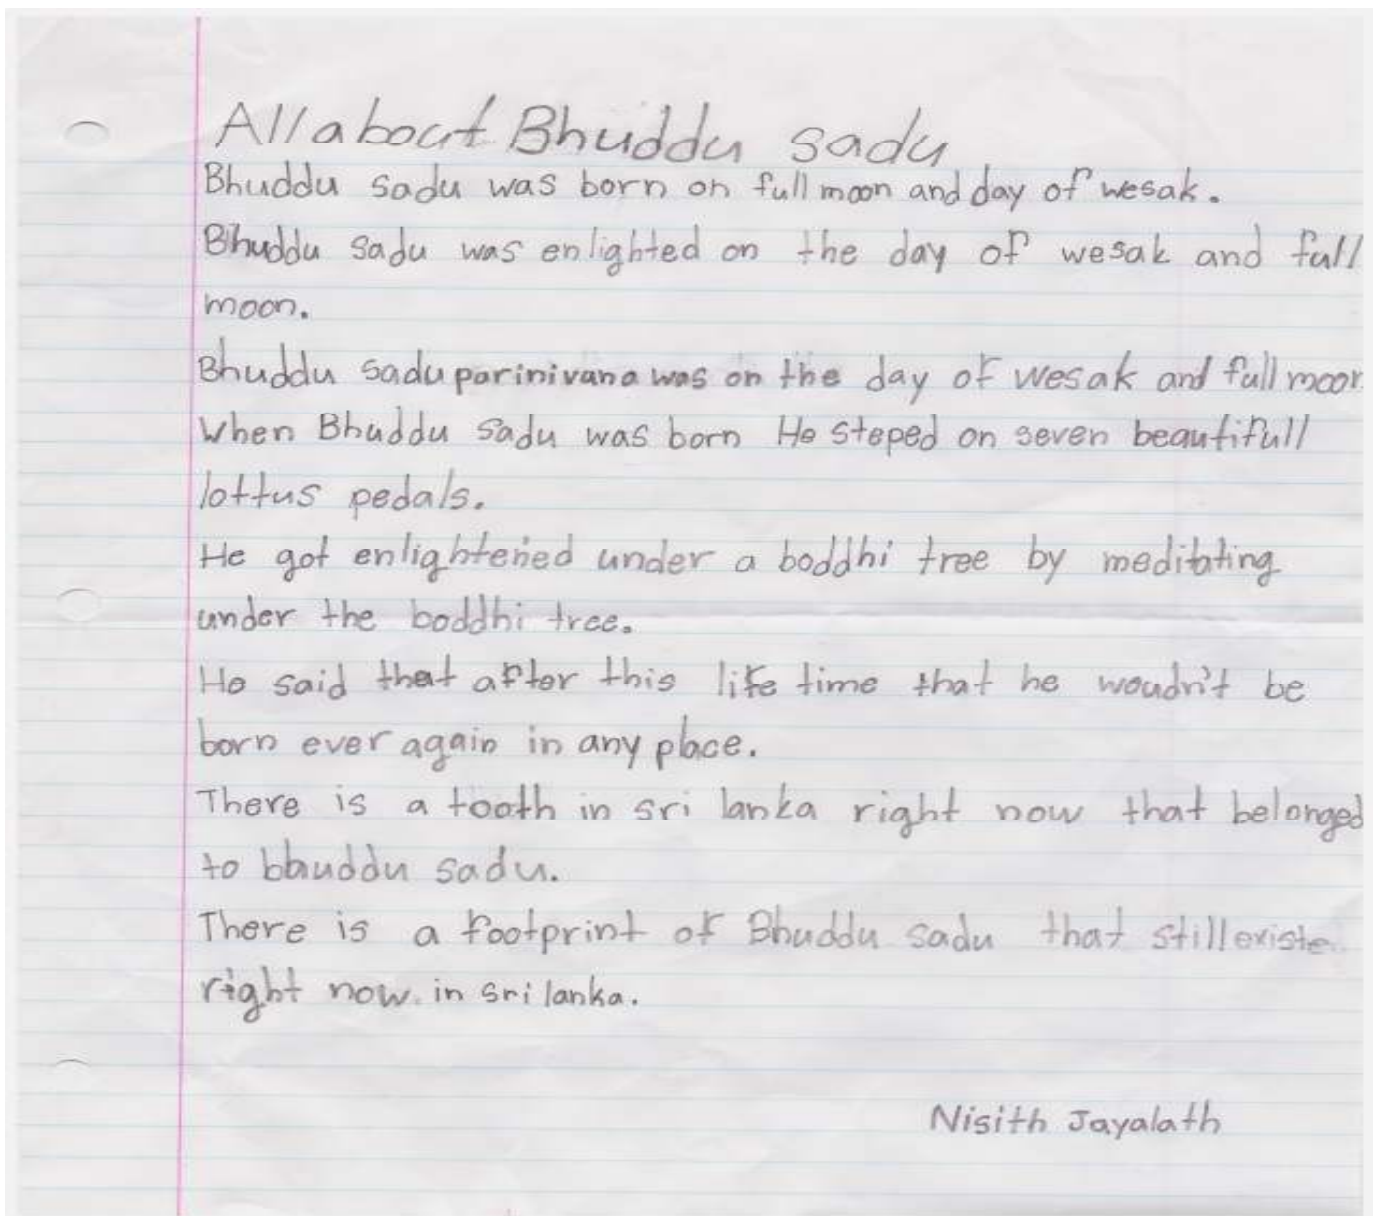 All about Bhuddu sadu
Bhuddu sadu was born on full moon and day of wesak.
Bhuddu sadu was enlighted on the day of wesak and full
moon.
Bhuddu sadu parinivana was on the day of wesak and full moon
When Bhuddu sadu was born He steped on seven beautifull
lottus pedals.
He got enlightened under a boddhi tree by meditating
under the boddhi tree.
He said that after this life time that he woudn't be
born ever again in any place.
There is a tooth in sri lanka right now that belonged
to bhuddu sadu.
There is a footprint of Bhuddu sadu that still existe
right now in sri lanka.
Nisith Jayalath